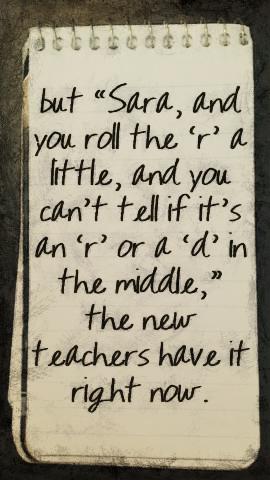 but “Sara, and
you roll the ‘r’ a
little, and you
can’t tell if it’s
an ‘r’ or a ‘d’ in
the middle,”
the new
teachers have it
right now.